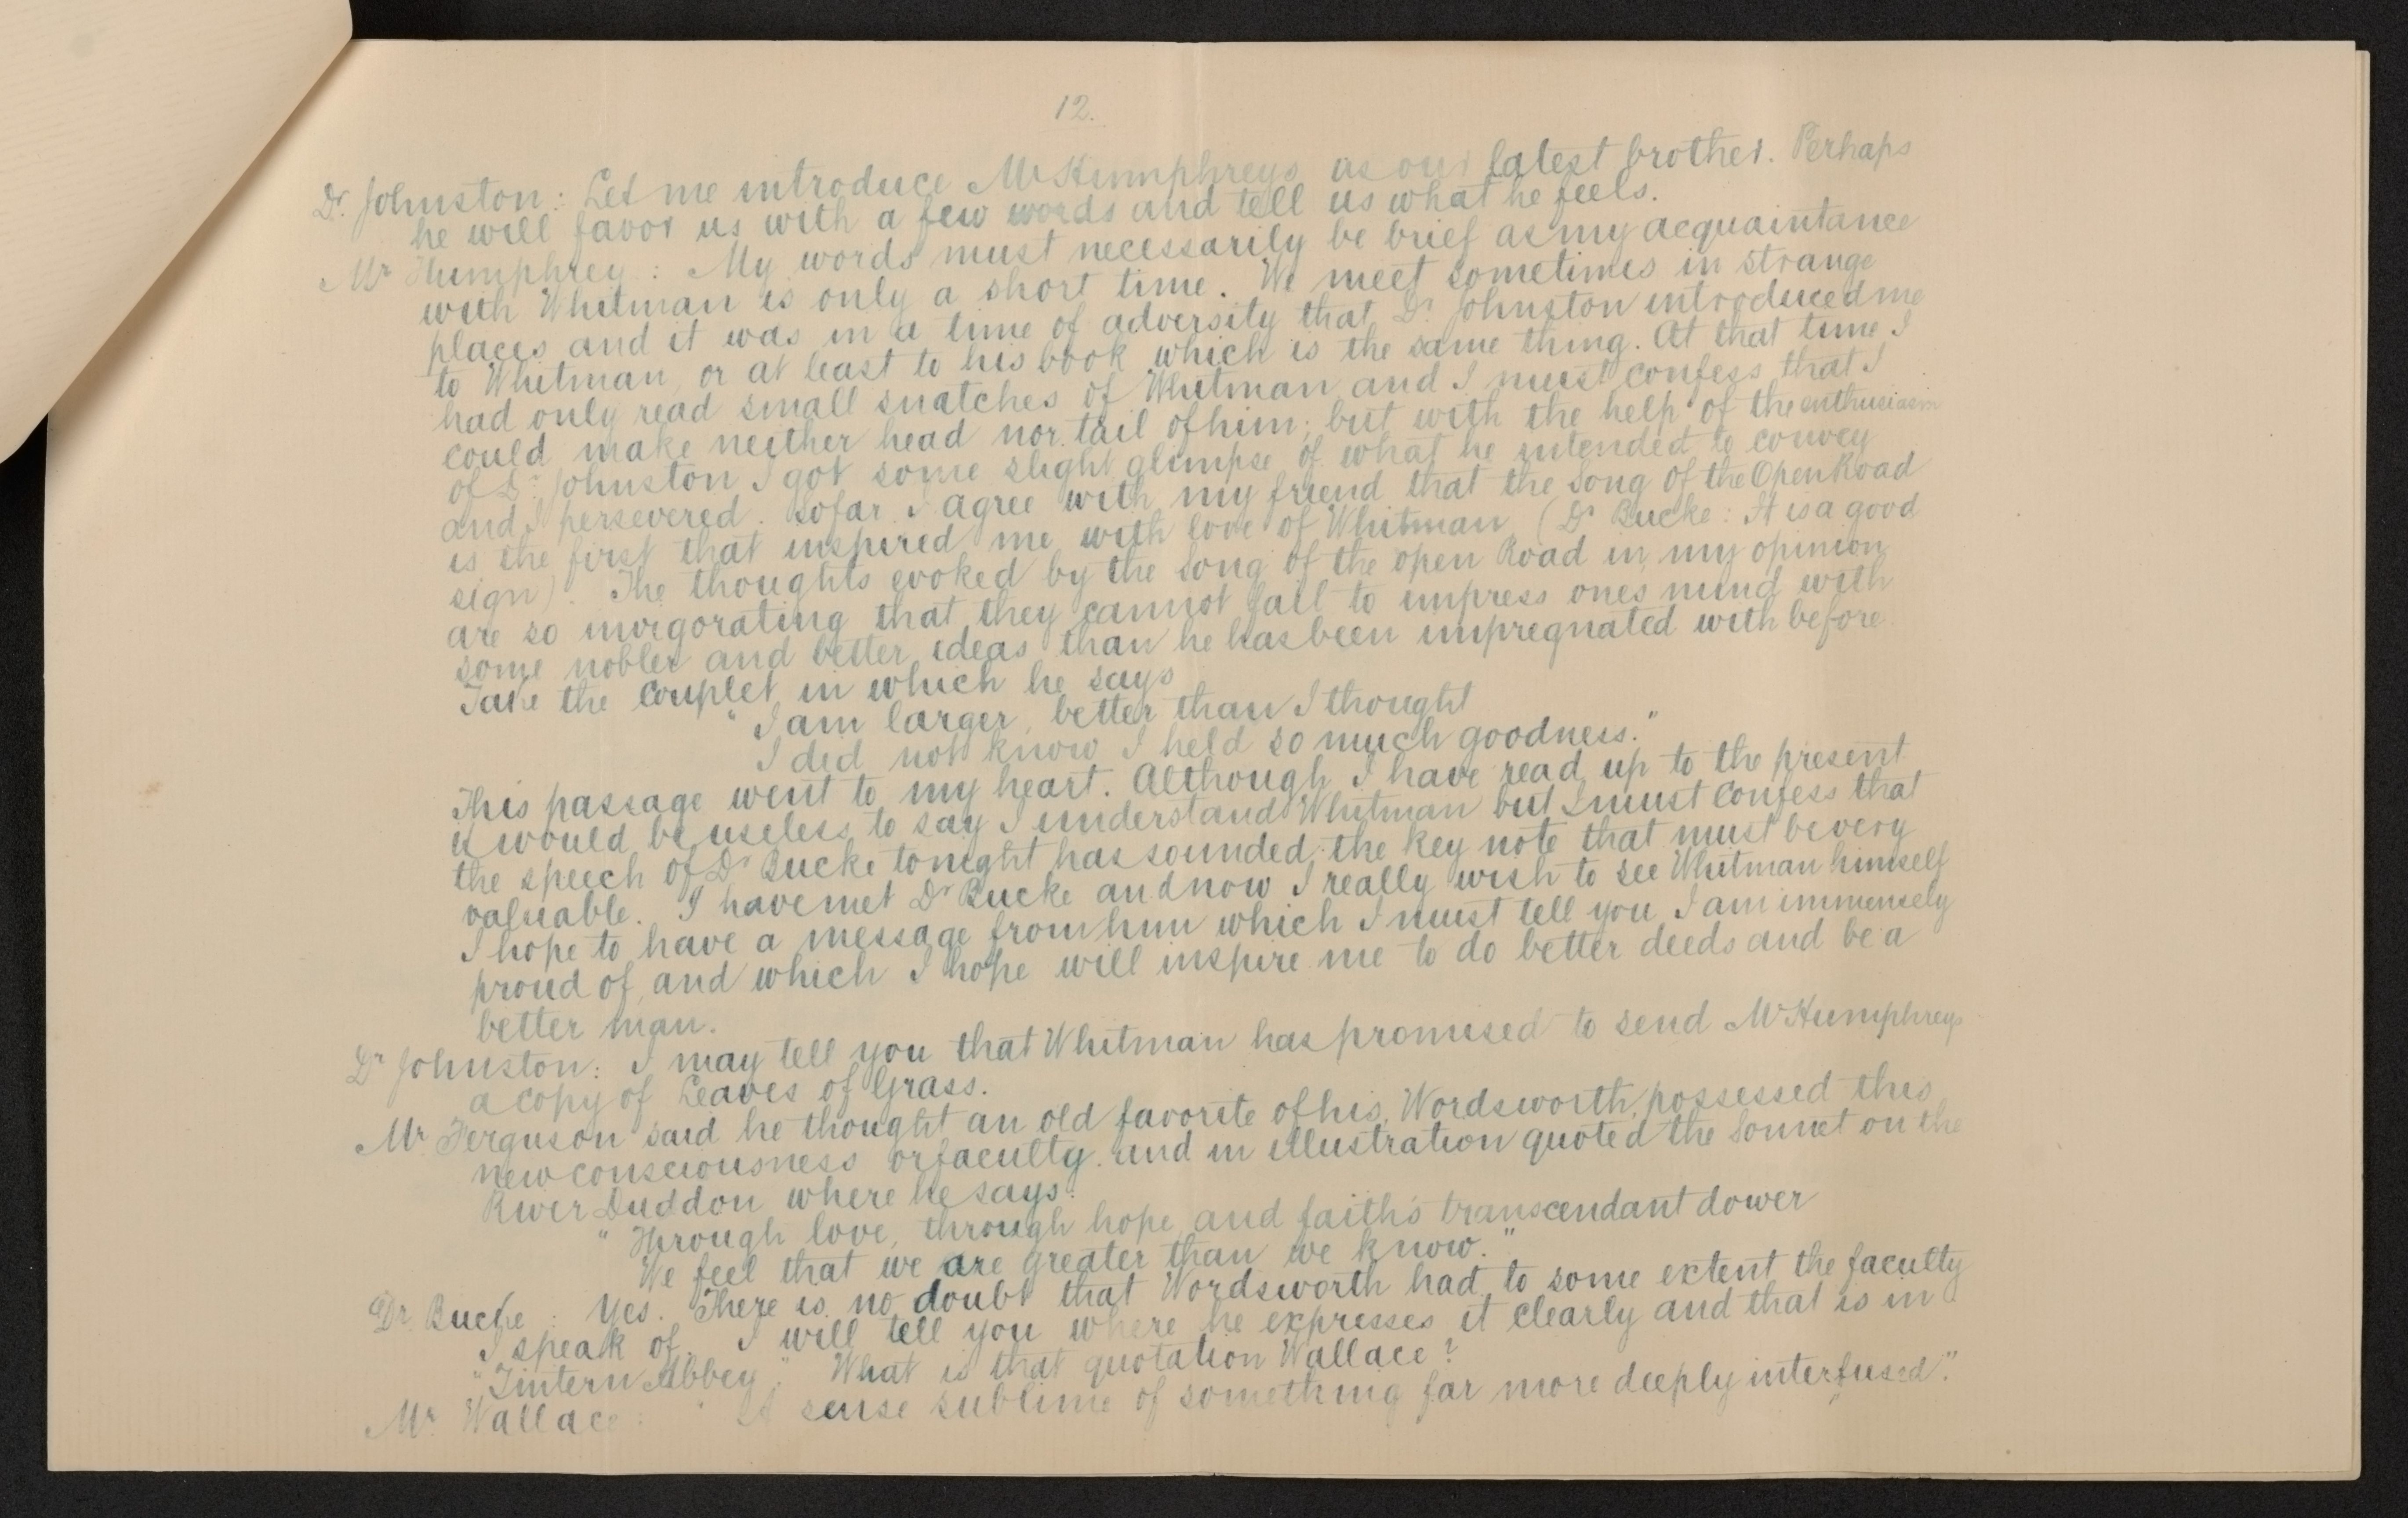 12.
Dr. Johnston: Let me introduce Mr Humphreys as our latest brother. Perhaps
he will favor us with a few words and tell us what he feels.
Mr Humphrey: My words must necessarily be brief as my acquaintance
with Whitman is only a short time. We meet sometimes in strange
places and it was in a time of adversity that Dr Johnston introduced me
to Whitman, or at least to his book which is the same thing. At that time I
had only read small snatches of Whitman and I must confess that I
could make neither head nor tail of him; but with the help of the enthusiasm
of Dr Johnston I got some slight glimpse of what he intended to convey
and I persevered. So far I agree with my friend that the Song of the Open Road
is the first that inspired me with love of Whitman (Dr Bucke: It is a good
sign). The thoughts evoked by the Song of the open Road in my opinion
are so invigorating that they cannot fail to impress ones mind with
some nobler and better ideas than he has been impregnated with before
Take the couplet in which he says
"I am larger, better than I thought
I did not know I held so much goodness."
This passage went to my heart. Although I have read up to the present
it would be useless to say I understand Whitman but I must confess that
the speech of Dr Bucke tonight has sounded the key note that must be very
valuable. I have met Dr Bucke and now I really wish to see Whitman himself
I hope to have a message from him which I must tell you I am immensely
proud of, and which I hope will inspire me to do better deeds and be a
better man.
Dr Johnston: I may tell you that Whitman has promised to send Mr Humphreys
a copy of Leaves of Grass.
Mr Ferguson said he thought an old favorite of his, Wordsworth, possessed this
new consciousness or faculty. and in illustration quoted the Sonnet on the
River Duddon where he says:
"Through love, through hope, and faith's transcendant dower
We feel that we are greater than we know."
Dr. Bucke: Yes. There is no doubt that Wordsworth had to some extent the faculty
I speak of. I will tell you where he expresses it clearly and that is in
"Tintern Abbey". What is that quotation Wallace?
Mr Wallace: "A sense sublime of something far more deeply interfused."